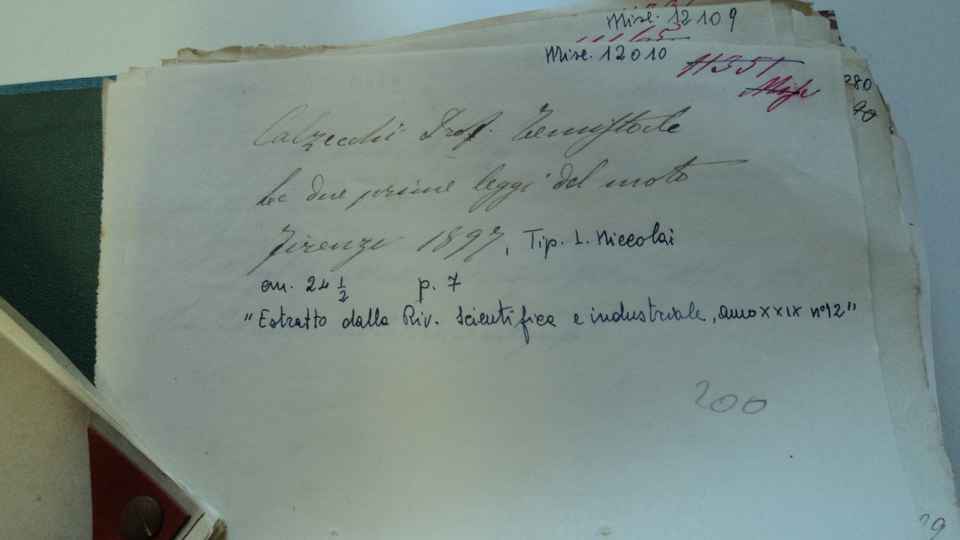 Misc. 12109
11115
Misc. 12010
11351
280
90
Calzecchi Prof. Temistocle
Le due prime leggi del moto
Firenze 1897, Tip. L. Niccolai
cm. 24 1/2 p. 7
"Estratto dalla Riv. Scientifica e industriale, anno XXIX n° 12"
200